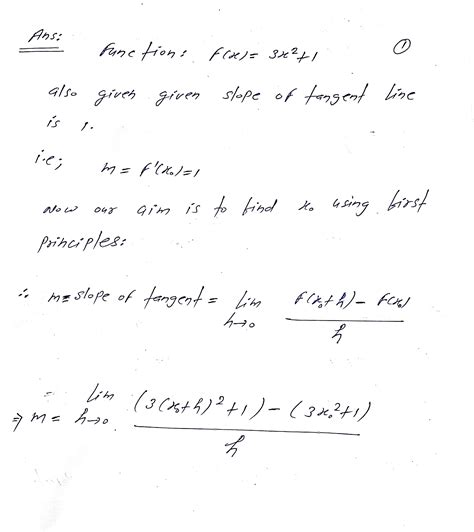 Ans:
Function: f(x) = 3x²+1 ①
also given given slope of tangent line
is 1.
i.e; m = f'(x₀) = 1
Now our aim is to find x₀ using first
principles:
∴ m = slope of tangent = lim h→0 (f(x₀+h) - f(x₀)) / h
⇒ m = lim h→0 ((3(x₀+h)²+1) - (3x₀²+1)) / h